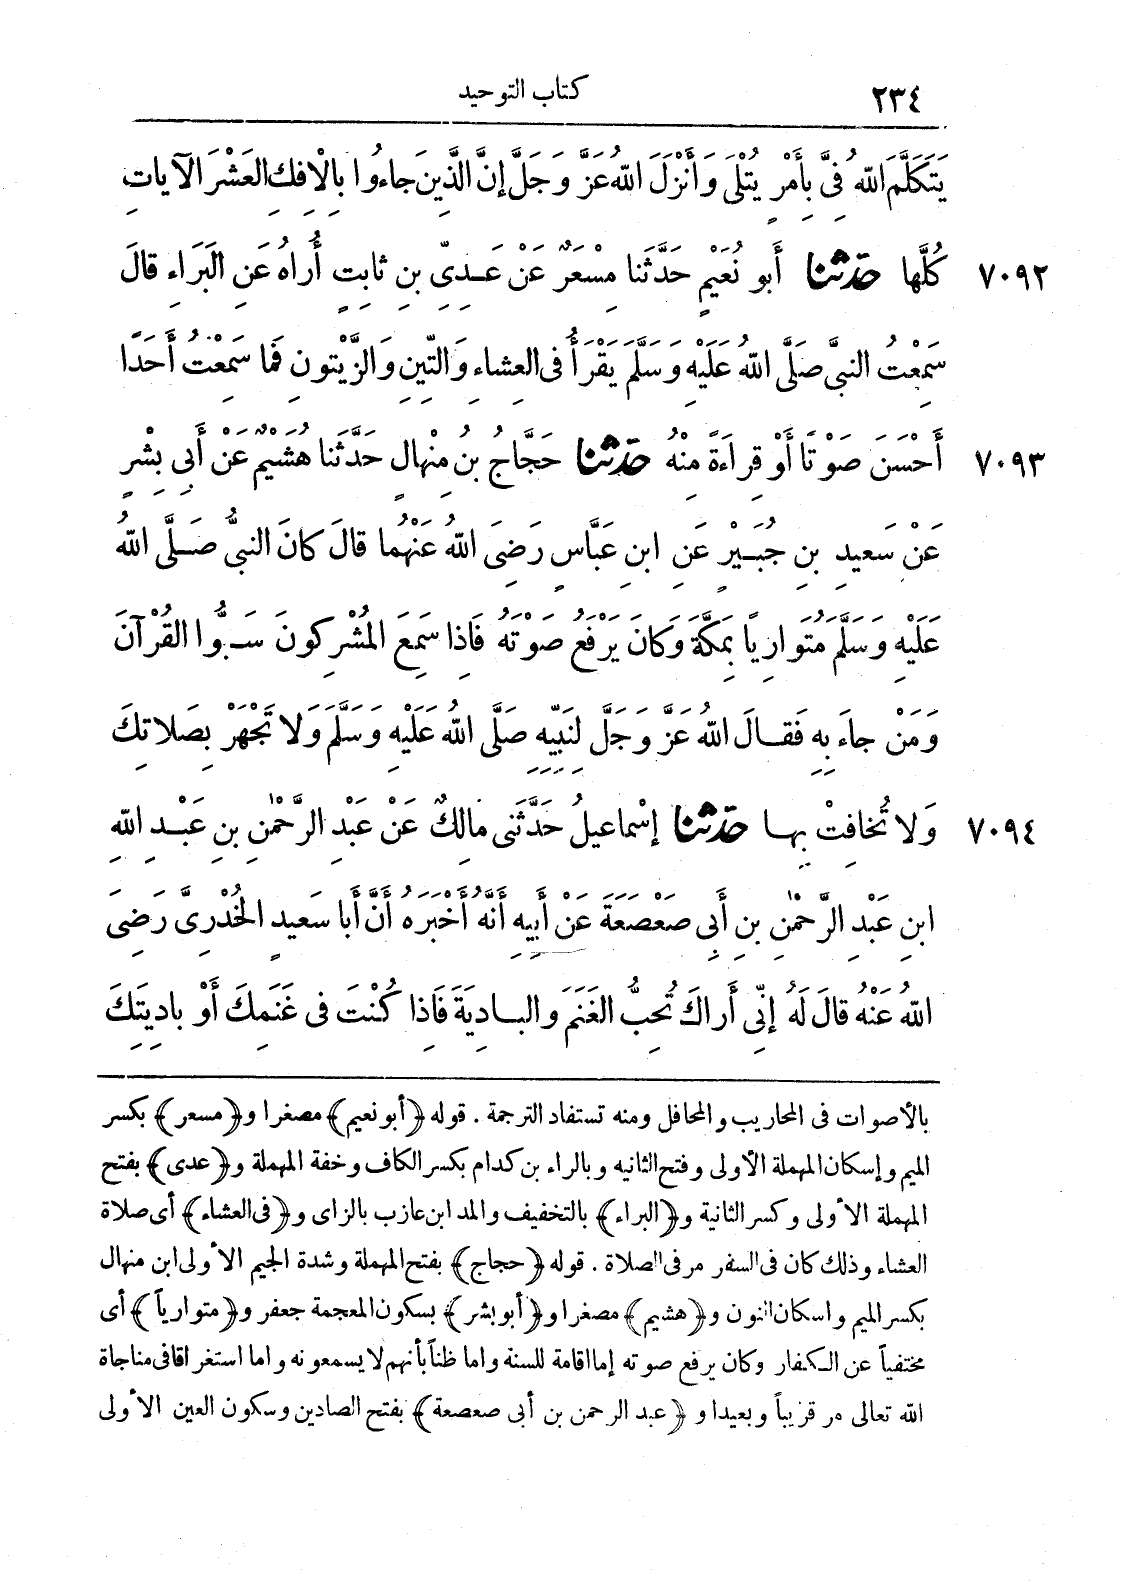 ٢٣٤ كتاب التوحيد
يَتَكَلَّمَ اللهُ فِيَّ بِأَمْرٍ يُتْلَى وَأَنْزَلَ اللهُ عَزَّ وَجَلَّ إِنَّ الَّذِينَ جَاءُوا بِالْإِفِكِ العَشْرَ الآيَاتِ
٧٠٩٢ كُلَّهَا حَدَّثَنَا أَبُو نُعَيْمٍ حَدَّثَنَا مِسْعَرٌ عَنْ عَدِيِّ بنِ ثابِتٍ أُراهُ عَنِ البَرَاءِ قالَ
سَمِعْتُ النبيَّ صَلَّى اللهُ عَلَيْهِ وَسَلَّمَ يَقْرَأُ فِى العِشاءِ وَالتِّينِ وَالزَّيْتونِ فَمَا سَمِعْتُ أَحَدًا
٧٠٩٣ أَحْسَنَ صَوْتًا أَوْ قِراءَةً مِنْهُ حَدَّثَنَا حَجَّاجُ بنُ مِنْهالٍ حَدَّثَنا هُشَيْمٌ عَنْ أَبِي بِشْرٍ
عَنْ سَعيدِ بنِ جُبَيْرٍ عَنِ ابنِ عَبَّاسٍ رَضِىَ اللهُ عَنْهُما قالَ كانَ النبيُّ صَلَّى اللهُ
عَلَيْهِ وَسَلَّمَ مُتَوارِيًا بِمَكَّةَ وَكانَ يَرْفَعُ صَوْتَهُ فَاِذا سَمِعَ المُشْرِكونَ سَبُّوا القُرْآنَ
وَمَنْ جاءَ بِهِ فَقالَ اللهُ عَزَّ وَجَلَّ لِنَبِيِّهِ صَلَّى اللهُ عَلَيْهِ وَسَلَّمَ وَلا تَجْهَرْ بِصَلاتِكَ
٧٠٩٤ وَلا تُخافِتْ بِها حَدَّثَنَا إِسْماعيلُ حَدَّثَنى مالِكٌ عَنْ عَبْدِ الرَّحْمٰنِ بنِ عَبْدِ اللهِ
ابنِ عَبْدِ الرَّحْمٰنِ بنِ أَبِى صَعْصَعَةَ عَنْ أَبِيهِ أَنَّهُ أَخْبَرَهُ أَنَّ أَبا سَعيدٍ الخُدْرِىَّ رَضِىَ
اللهُ عَنْهُ قالَ لَهُ إِنِّي أَراكَ تُحِبُّ الغَنَمَ والبادِيَةَ فَاِذا كُنْتَ فى غَنَمِكَ أَوْ بادِيَتِكَ
بالأصوات فى المحاريب والمحافل ومنه تستفاد الترجمة . قوله ﴿أبو نعيم﴾ مصغرا و﴿مسعر﴾ بكسر
الميم وإسكان المهملة الأولى وفتح الثانيه وبالراء بن كدام بكسر الكاف وخفة المهملة و﴿عدى﴾ بفتح
المهملة الأولى وكسر الثانية و﴿البراء﴾ بالتخفيف والمد ابن عازب بالزاى و﴿فى العشاء﴾ أى صلاة
العشاء وذلك كان فى السفر مر فى الصلاة . قوله ﴿حجاج﴾ بفتح المهملة وشدة الجيم الأولى ابن منهال
بكسر الميم واسكان النون و﴿هشيم﴾ مصغرا و﴿أبو بشر﴾ بسكون المعجمة جعفر و﴿متوارياً﴾ أى
مختفياً عن الكفار وكان يرفع صوته إما اقامة للسنة واما ظناً بأنهم لا يسمعونه واما استغراقا فى مناجاة
الله تعالى مر قريباً وبعيدا و﴿عبد الرحمن بن أبى صعصعة﴾ بفتح الصادين وسكون العين الأولى